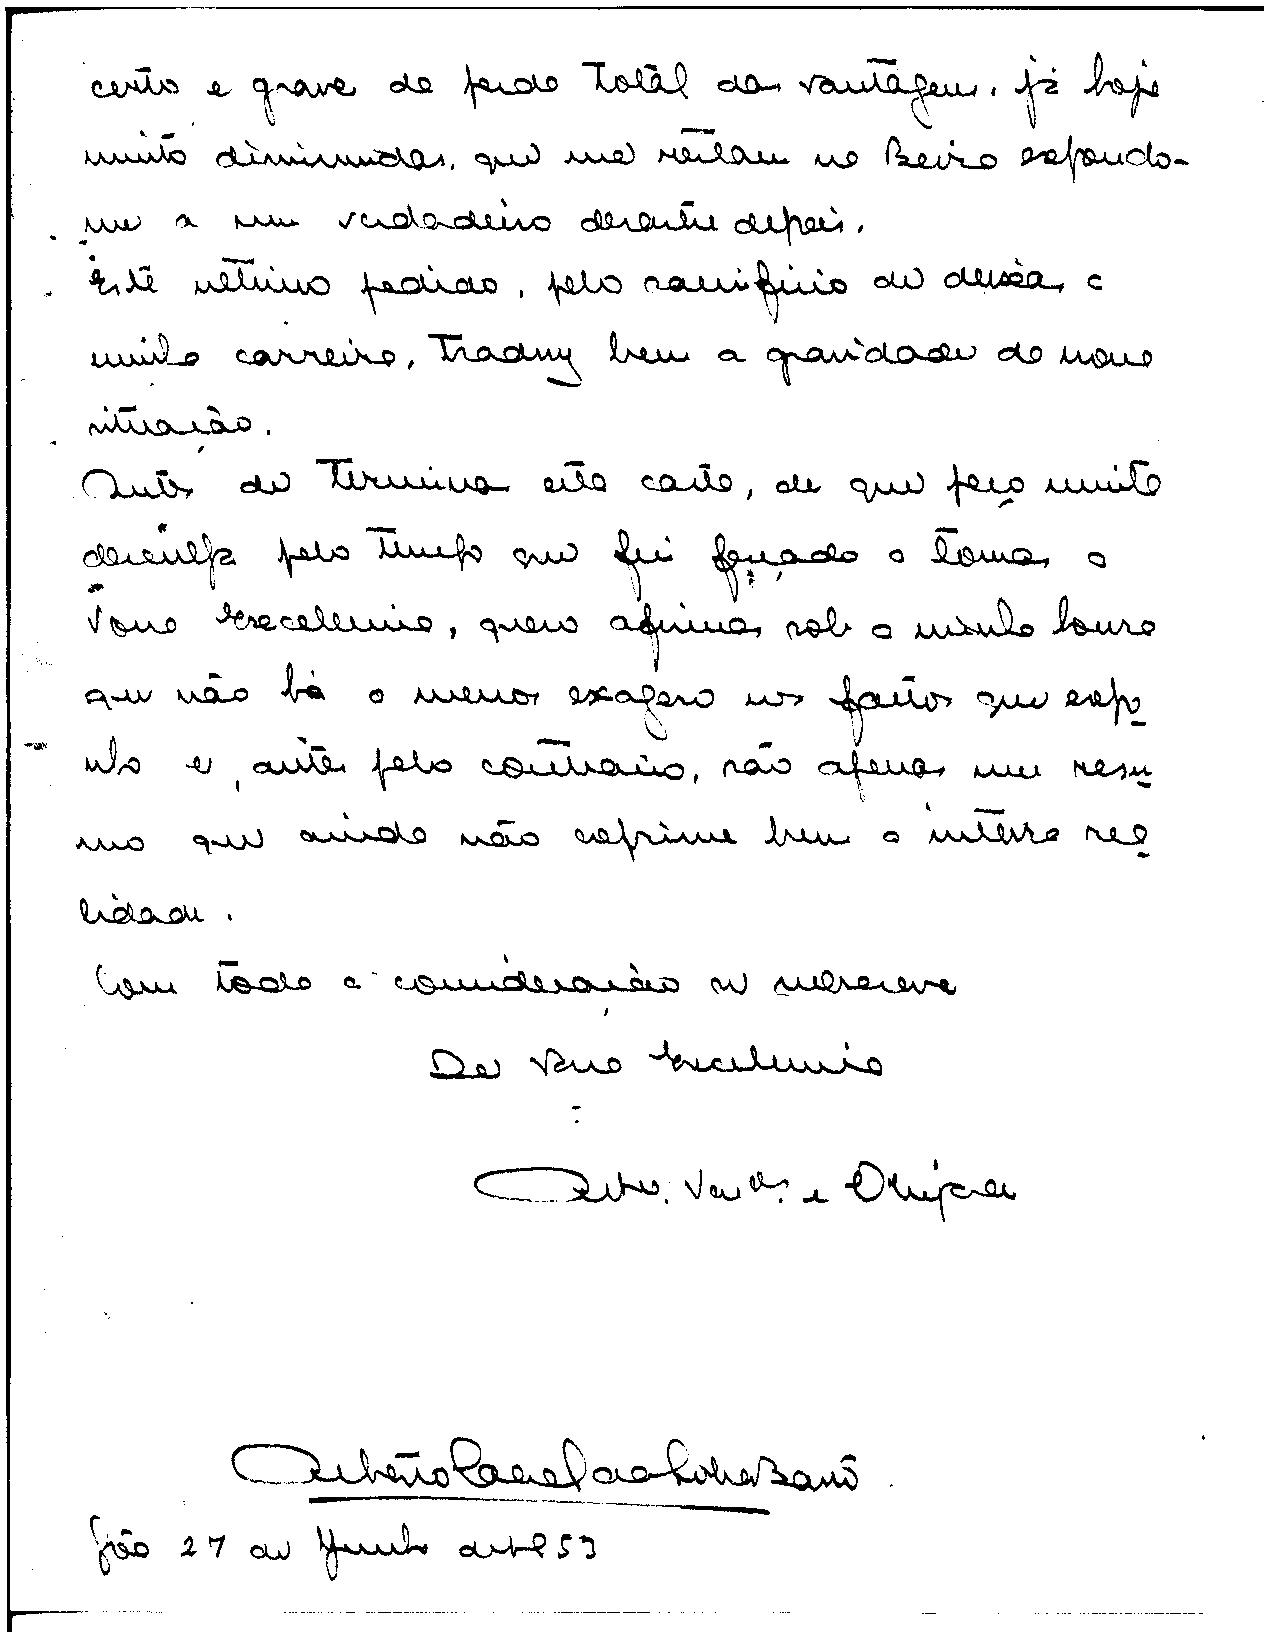 certo e grave da perda total das vantagens, já hoje
muito diminuidas, que me restam na Beira expondo-
me a um verdadeiro desastre depois.
Este ultimo pedido, pelo sacrificio de deixar a
minha carreira, traduz bem a gravidade da nossa
situação.
Antes de terminar esta carta, de que peço muita
desculpa pelo tempo que fui forçado a tomar a
Vossa Excelencia, quero afirmar sob a minha honra
que não há o menor exagero nos factos que expo_
nho e, antes pelo contrario, são apenas um resu_
mo que ainda não exprime bem a inteira rea_
lidade.
Com toda a consideração se subscreve
De Vossa Excelencia
e
Alberto
27 de Junho de 1953